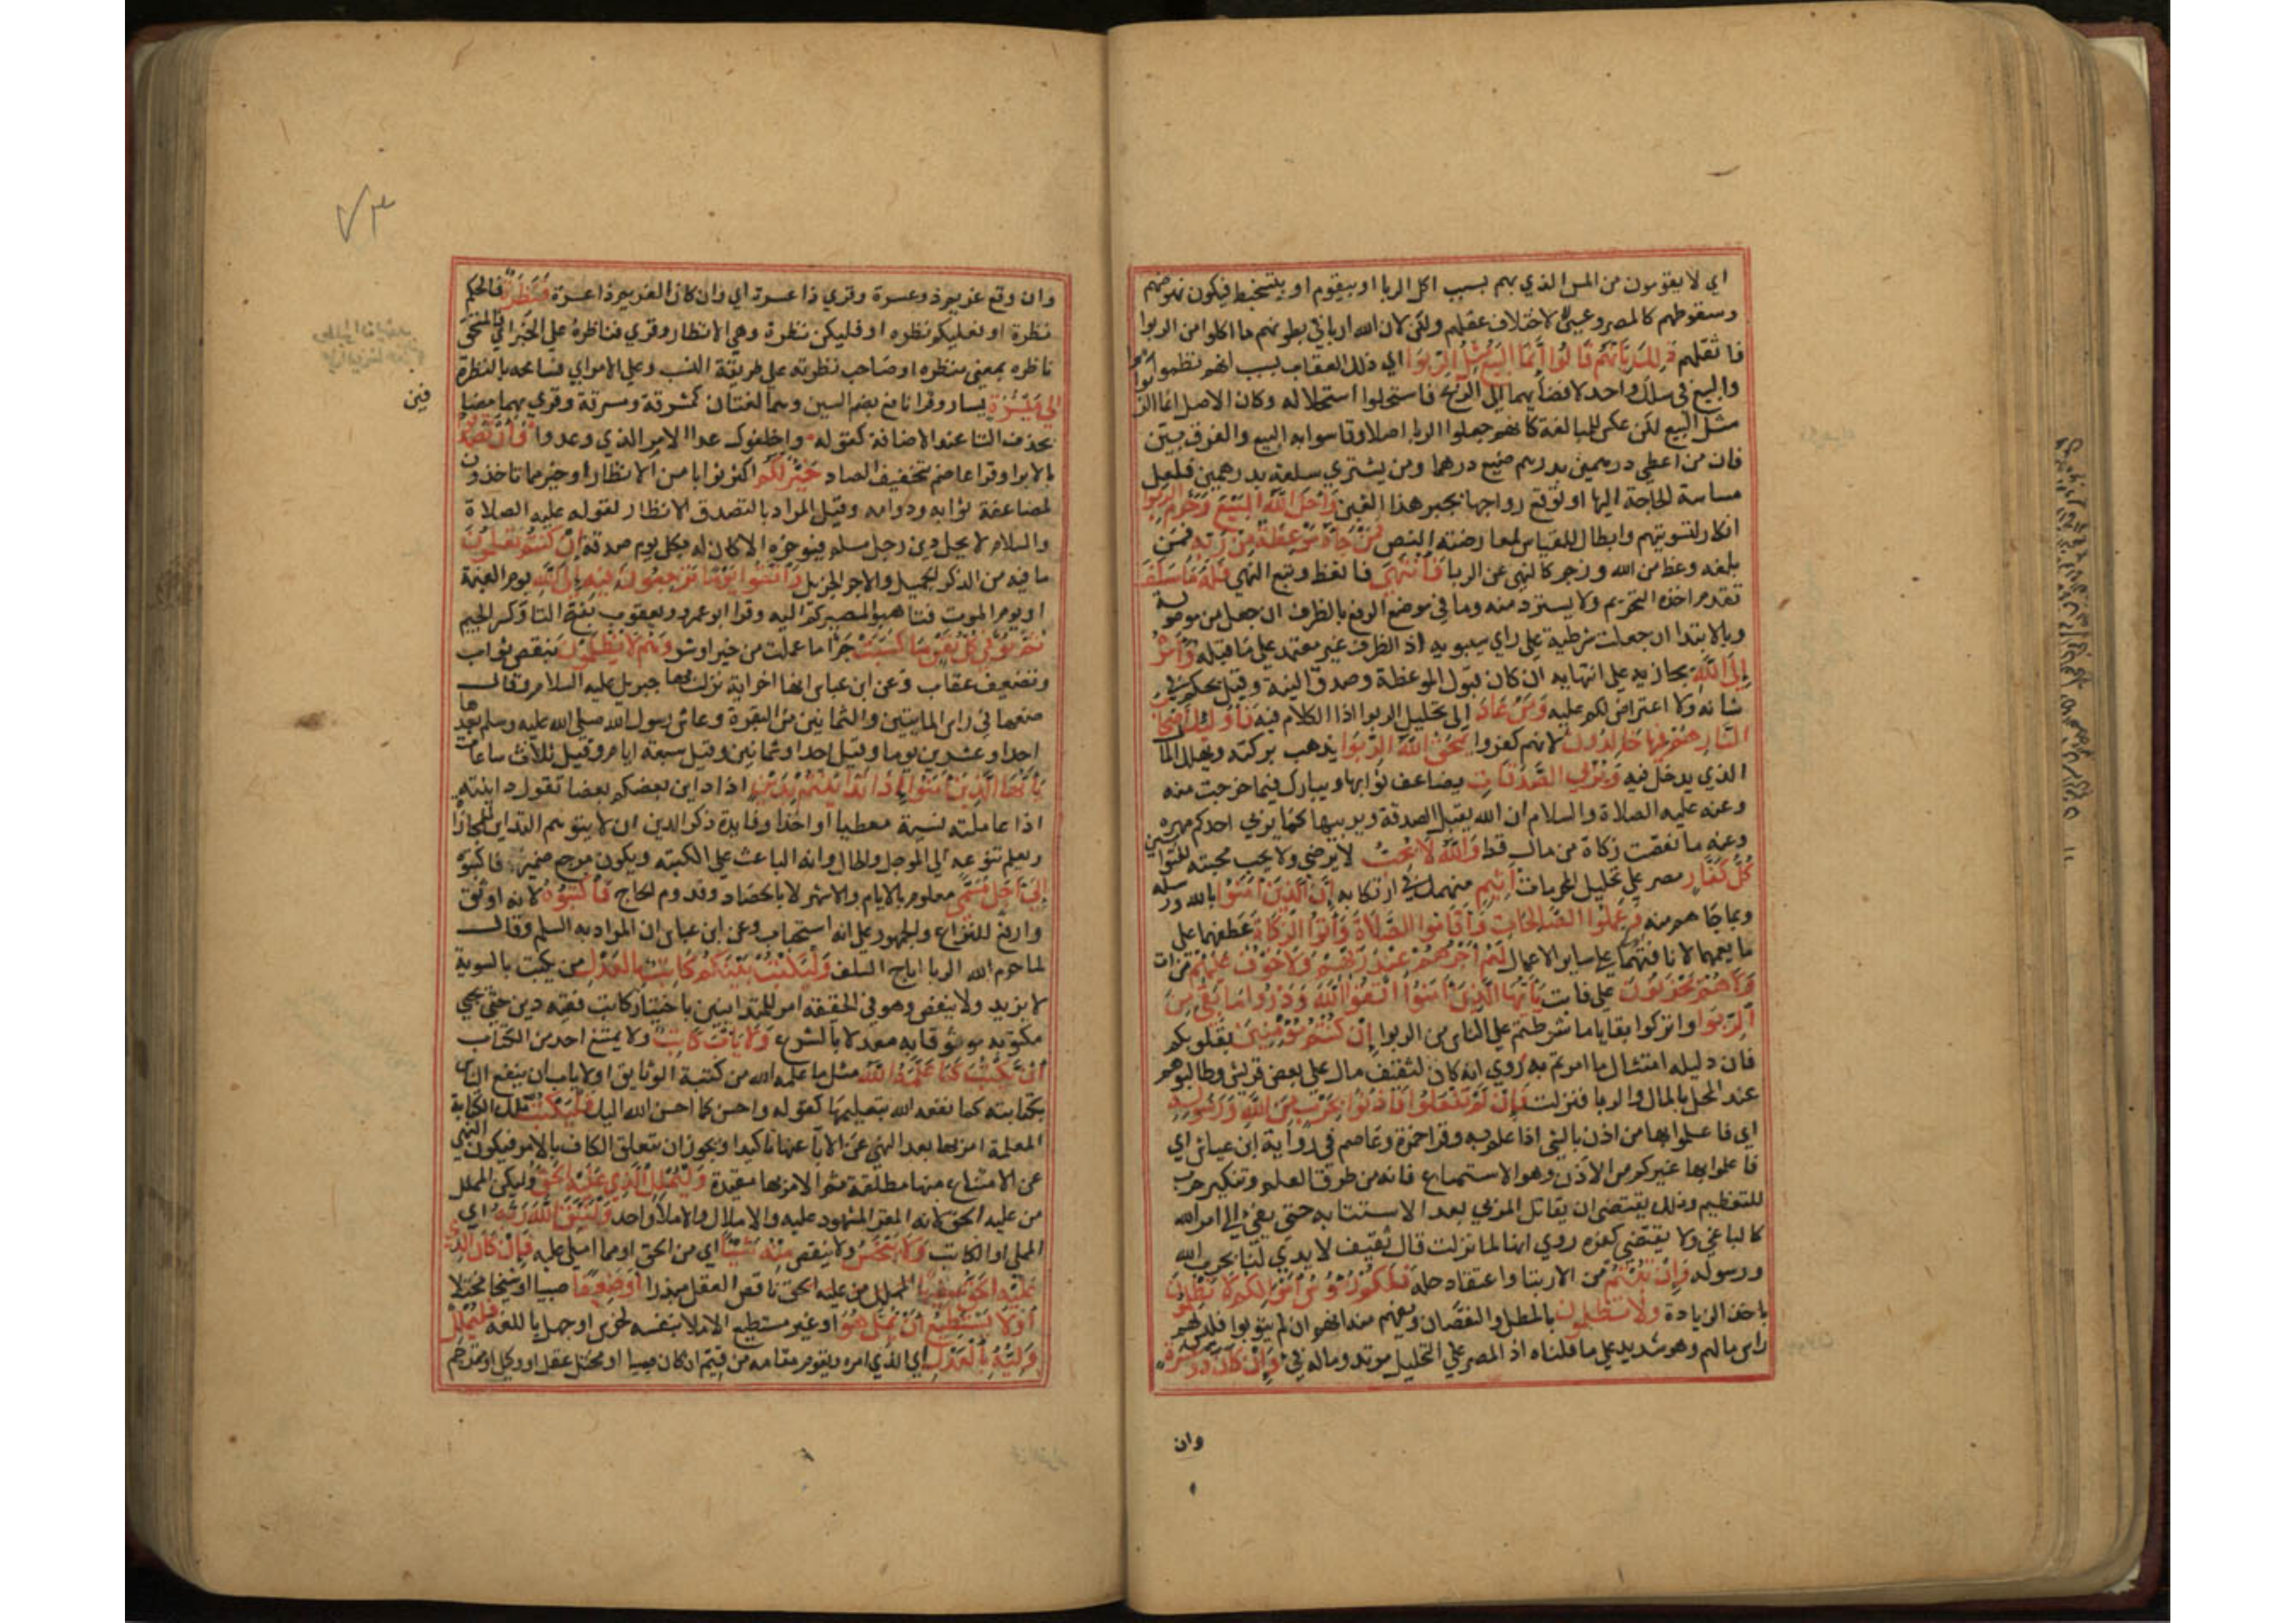 اي لا يقومون من المس الذي بهم بسبب اكل الربا او بيقوم او بيتخبط فيكون نهوضهم
وسقوطهم كالمصروعين لا لاختلاف عقلهم ولكن لان الله اربا في بطونهم ما اكلوا من الربوا
فاثقلهم ذلك بانهم قالوا انما البيع مثل الربوا اي ذلك العقاب بسبب انهم نظموا الربوا
والبيع في سلك واحد لافضائهما الي الربح فاستحلوا استحلاله وكان الاصل انما الربوا
مثل البيع لكن عكس للمبالغة كانهم جعلوا الربا اصلا وقاسوا به البيع والفرق بين
فان من اعطي درهمين بدرهم ضيع درهما ومن يشتري سلعة بدرهمين فلعل
مساسة الحاجة اليها او توقع رواجها يجبر هذا الغبن واحل الله البيع وحرم الربوا
انكار لتسويتهم وابطال للقياس لمعارضته النص فمن جاءه موعظة من ربه فمن
بلغه وعظ من الله وزجر كالنهي عن الربا فانتهي فاتعظ وتبع النهي فله ما سلف
تقدم اخذه التحريم ولا يسترد منه وما في موضع الرفع بالظرف ان جعل من موصولة
وبالابتدا ان جعلت شرطية علي راي سيبويه اذ الظرف غير معتمد علي ما قبله وامره
الي الله يجازيه علي انتهايه ان كان قبول الموعظة وصدق النية وقيل يحكم في
شانه ولا اعتراض لكم عليه ومن عاد الي تحليل الربوا اذ الكلام فيه فاوليك اصحاب
النار هم فيها خالدون لانهم كفروا يمحق الله الربوا يذهب بركته ويهلك المال
الذي يدخل فيه ويربي الصدقات يضاعف ثوابها ويبارك فيما خرجت منه
وعنه عليه الصلاة والسلام ان الله يقبل الصدقة ويربيها كما يربي احدكم مهره
وعنه ما نقصت زكاة من مال قط والله لا يحب لا يرضي ولا يحب محبته للتوابين
كل كفار مصر علي تحليل المحرمات اثيم منهمك في ارتكابه ان الذين امنوا بالله ورسله
وبما جاهم منه وعملوا الصالحات واقاموا الصلاة واتوا الزكاة عطفهما علي
ما يعمهما لانافتهما علي ساير الاعمال لهم اجرهم عند ربهم ولا خوف عليهم من ات
ولا هم يحزنون علي فايت يا ايها الذين امنوا اتقوا الله وذروا ما بقي من
الربوا واتركوا بقايا ما شرطتم علي الناس من الربوا ان كنتم مؤمنين بقلوبكم
فان دليله امتثال ما امرتم به روي انه كان لثقيف مال علي بعض قريش وطالبوهم
عند المحل بالمال والربا فنزلت فان لم تفعلوا فاذنوا بحرب من الله ورسوله
اي فاعلموا بها من اذن بالشي اذا علم به وقرا حمزة وعاصم في رواية ابن عياش اي
فاعلموا بها غيركم من الاذن وهو الاستماع فانه من طرق العلم وتنكير حرب
للتعظيم وذلك يقتضي ان يقاتل المربي بعد الاستتابه حتي يفئ الي امر الله
كالباغي ولا يقتضي كفره روي انها لما نزلت قال ثقيف لا يدي لنا بحرب الله
ورسوله وان تبتم من الارتبا واعتقاد حله فلكم رؤس اموالكم لا تظلمون
باخذ الزيادة ولا تظلمون بالمطل والنقصان ويفهم منه انهم ان لم يتوبوا فليس لهم
راس مالهم وهو شديد علي ما قلناه اذ المصر علي التحليل مرتد وماله فئ وان كان ذو عسرة
وان
وان وقع غريم ذو عسرة وقري ذا عسرة اي وان كان الغريم ذا عسرة فنظرة فالحكم
نظرة او فعليكم نظره او فليكن نظرة وهي الانظار وقري فناظرة علي الخبر اي فالمستحق
ناظره بمعني منتظره او صاحب نظرته علي طريقة النسب وعلي الامر اي فسامحه بالنظرة
الي ميسرة يسار وقرا نافع بضم السين وهما لغتان كمشرقة ومشرقة وقري بهما مضافا
بحذف التا عند الاضافة كقوله واخلفوك عدا الامر الذي وعدوا وان تصدقوا
بالابرا وقرا عاصم بتخفيف الصاد خير لكم اكثر ثوابا من الانظار او خير مما تاخذون
لمضاعفة ثوابه ودوامه وقيل المراد بالتصدق الانظار لقوله عليه الصلاة
والسلام لا يحل دين رجل مسلم فيؤخره الا كان له بكل يوم صدقة ان كنتم تعلمون
ما فيه من الذكر الجميل والاجر الجزيل واتقوا يوما ترجعون فيه الي الله يوم القيمة
او يوم الموت فتاهبوا لمصيركم اليه وقرا ابو عمرو ويعقوب بفتح التا وكسر الجيم
ثم توفي كل نفس ما كسبت جزا ما عملت من خير او شر وهم لا يظلمون بنقص ثواب
وتضعيف عقاب وعن ابن عباس انها اخر اية نزل بها جبريل عليه السلام وقال
ضعها في راس المايتين والثمانين من البقرة وعاش رسول الله صلي الله عليه وسلم بعدها
احدا وعشرين يوما وقيل احدا وثمانين وقيل سبعة ايام وقيل ثلاث ساعات
يا ايها الذين امنوا اذا تداينتم بدين اذا داين بعضكم بعضا تقول داينته
اذا عاملته نسية معطيا او اخذا وفايدة ذكر الدين ان لا يتوهم التداين المجازاة
ويعلم تنوعه الي الموجل والحال وانه الباعث علي الكتبة ويكون مرجع ضمير فاكتبوه
الي اجل مسمي معلوم بالايام والاشهر لا بالحصاد وقدوم الحاج فاكتبوه لانه اوثق
وادفع للنزاع والجمهور علي انه استحباب وعن ابن عباس ان المراد به السلم وقال
لما حرم الله الربا اباح السلف وليكتب بينكم كاتب بالعدل من يكتب بالسوية
لا يزيد ولا ينقص وهو في الحقيقة امر للمتداينين باختيار كاتب فقيه دين حتي يجي
مكتوبه موثوقا به معدلا بالشرع ولا ياب كاتب ولا يمتنع احد من الكتاب
ان يكتب كما علمه الله مثل ما علمه الله من كتبة الوثايق او لا ياب ان ينفع الناس
بكتابته كما نفعه الله بتعليمها كقوله واحسن كما احسن الله اليك فليكتب تلك الكتابة
المعلمة امر بها بعد النهي عن الابا عنها تاكيدا ويجوز ان تتعلق الكاف بالامر فيكون النهي
عن الامتناع منها مطلقة ثم الامر بها مقيدة وليملل الذي عليه الحق وليكن الممل
من عليه الحق لانه المقر المشهود عليه والاملال والاملا واحد وليتق الله ربه اي
المملي او الكاتب ولا يبخس ولا ينقص منه شيئا اي من الحق او مما املي عليه فان كان الذي
عليه الحق سفيها المملل من عليه الحق ناقص العقل مبذرا او ضعيفا صبيا او شيخا مختلا
او لا يستطيع ان يمل هو او غير مستطيع الاملا بنفسه لخرس او جهل باللغة فليملل
وليه بالعدل اي الذي امره ويقوم مقامه من قيم ان كان صبيا او مختل عقل او وكيل او مترجم